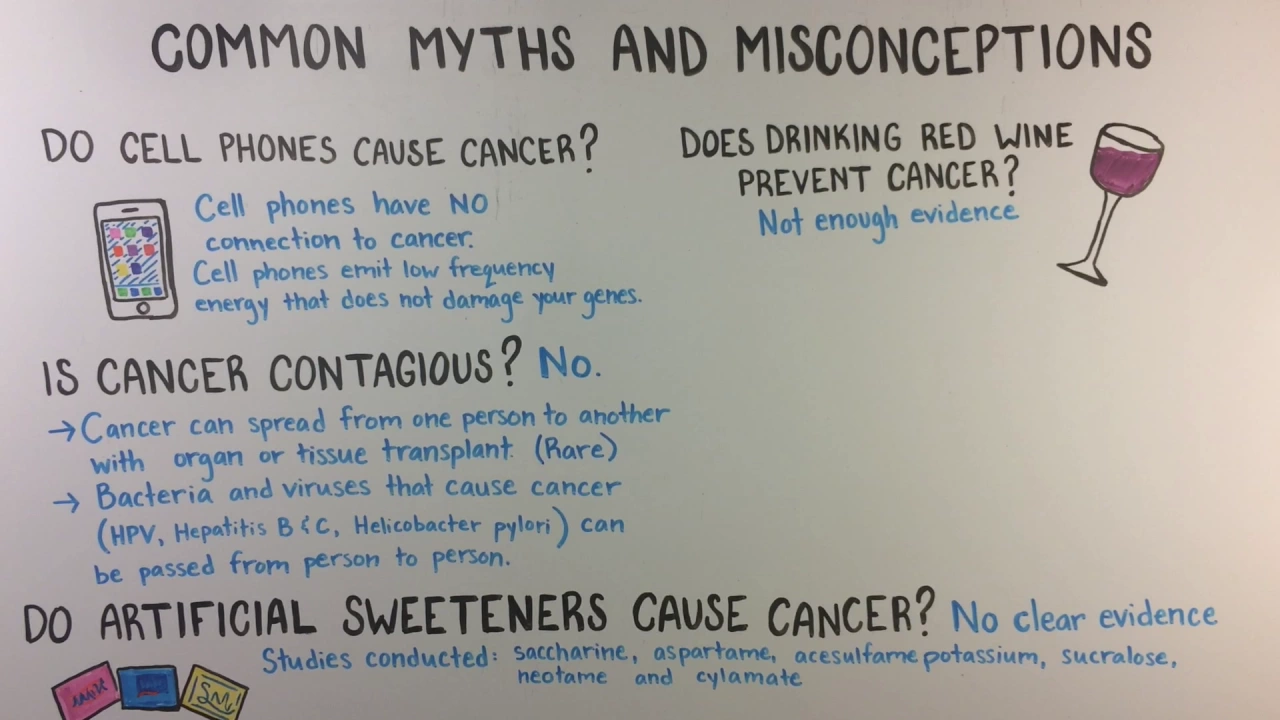 COMMON MYTHS AND MISCONCEPTIONS
DO CELL PHONES CAUSE CANCER?
Cell phones have NO
connection to cancer.
Cell phones emit low frequency
energy that does not damage your genes.
DOES DRINKING RED WINE
PREVENT CANCER?
Not enough evidence
IS CANCER CONTAGIOUS? No.
→ Cancer can spread from one person to another
with organ or tissue transplant. (Rare)
→ Bacteria and viruses that cause cancer
(HPV, Hepatitis B & C, Helicobacter pylori) can
be passed from person to person.
DO ARTIFICIAL SWEETENERS CAUSE CANCER? No clear evidence
Studies conducted: saccharine, aspartame, acesulfame potassium, sucralose,
neotame and cylamate